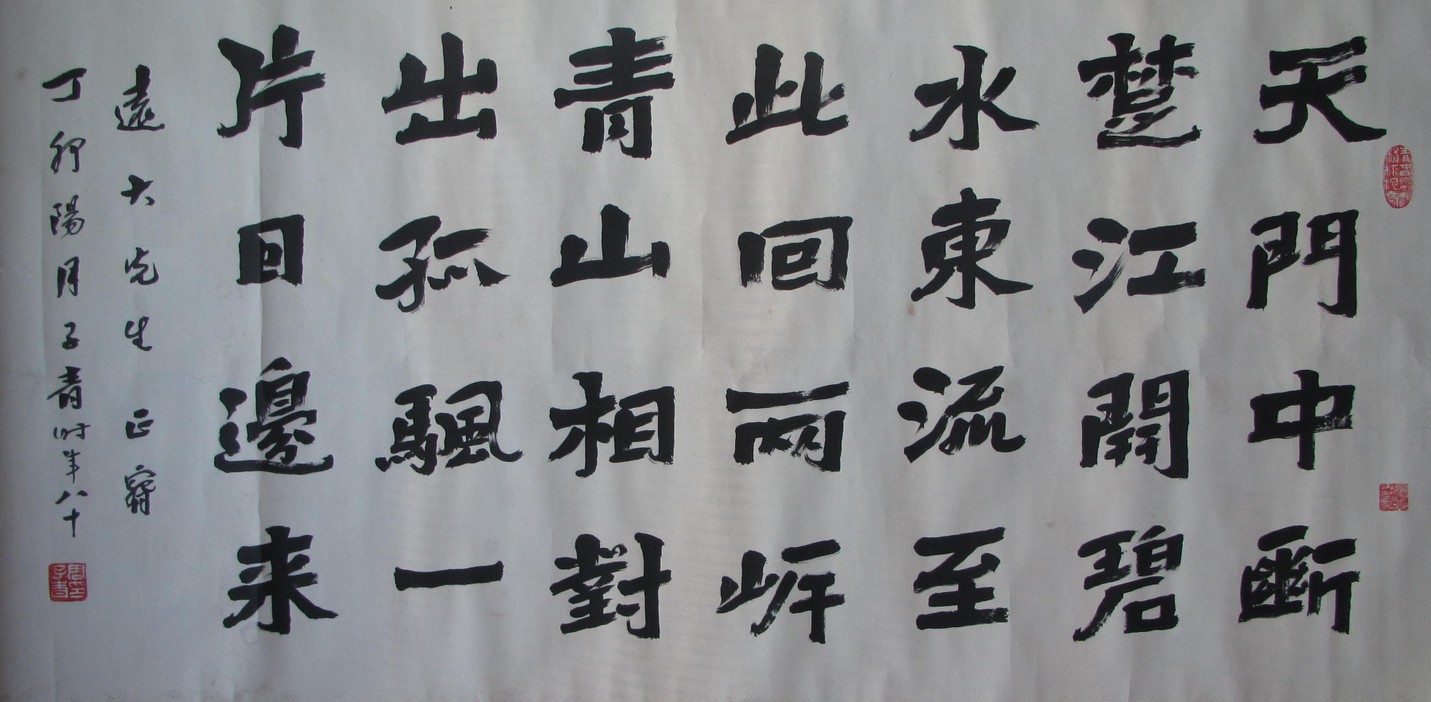 天門中斷
楚江開碧
水東流至
此回兩岸
青山相對
出孤颿一
片日邊来
遠大先生正
丁卯陽月子青时年八十
周印子青